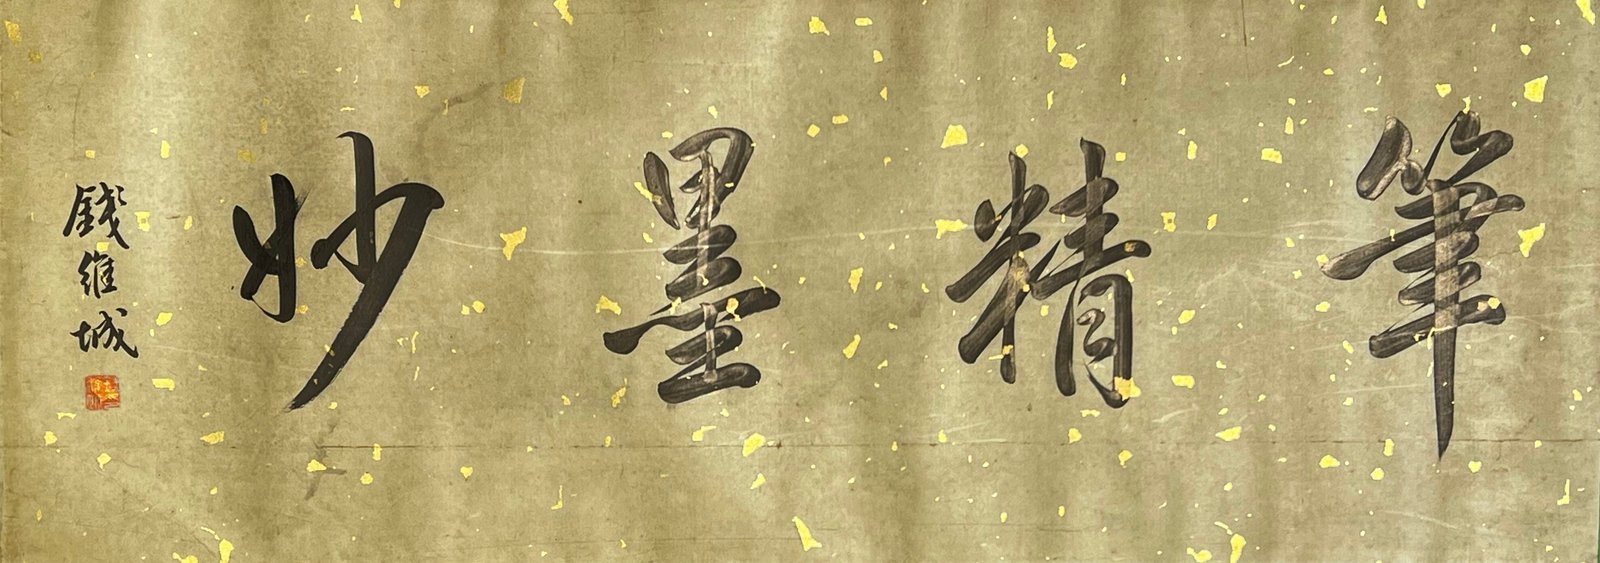 筆精墨妙
錢維城